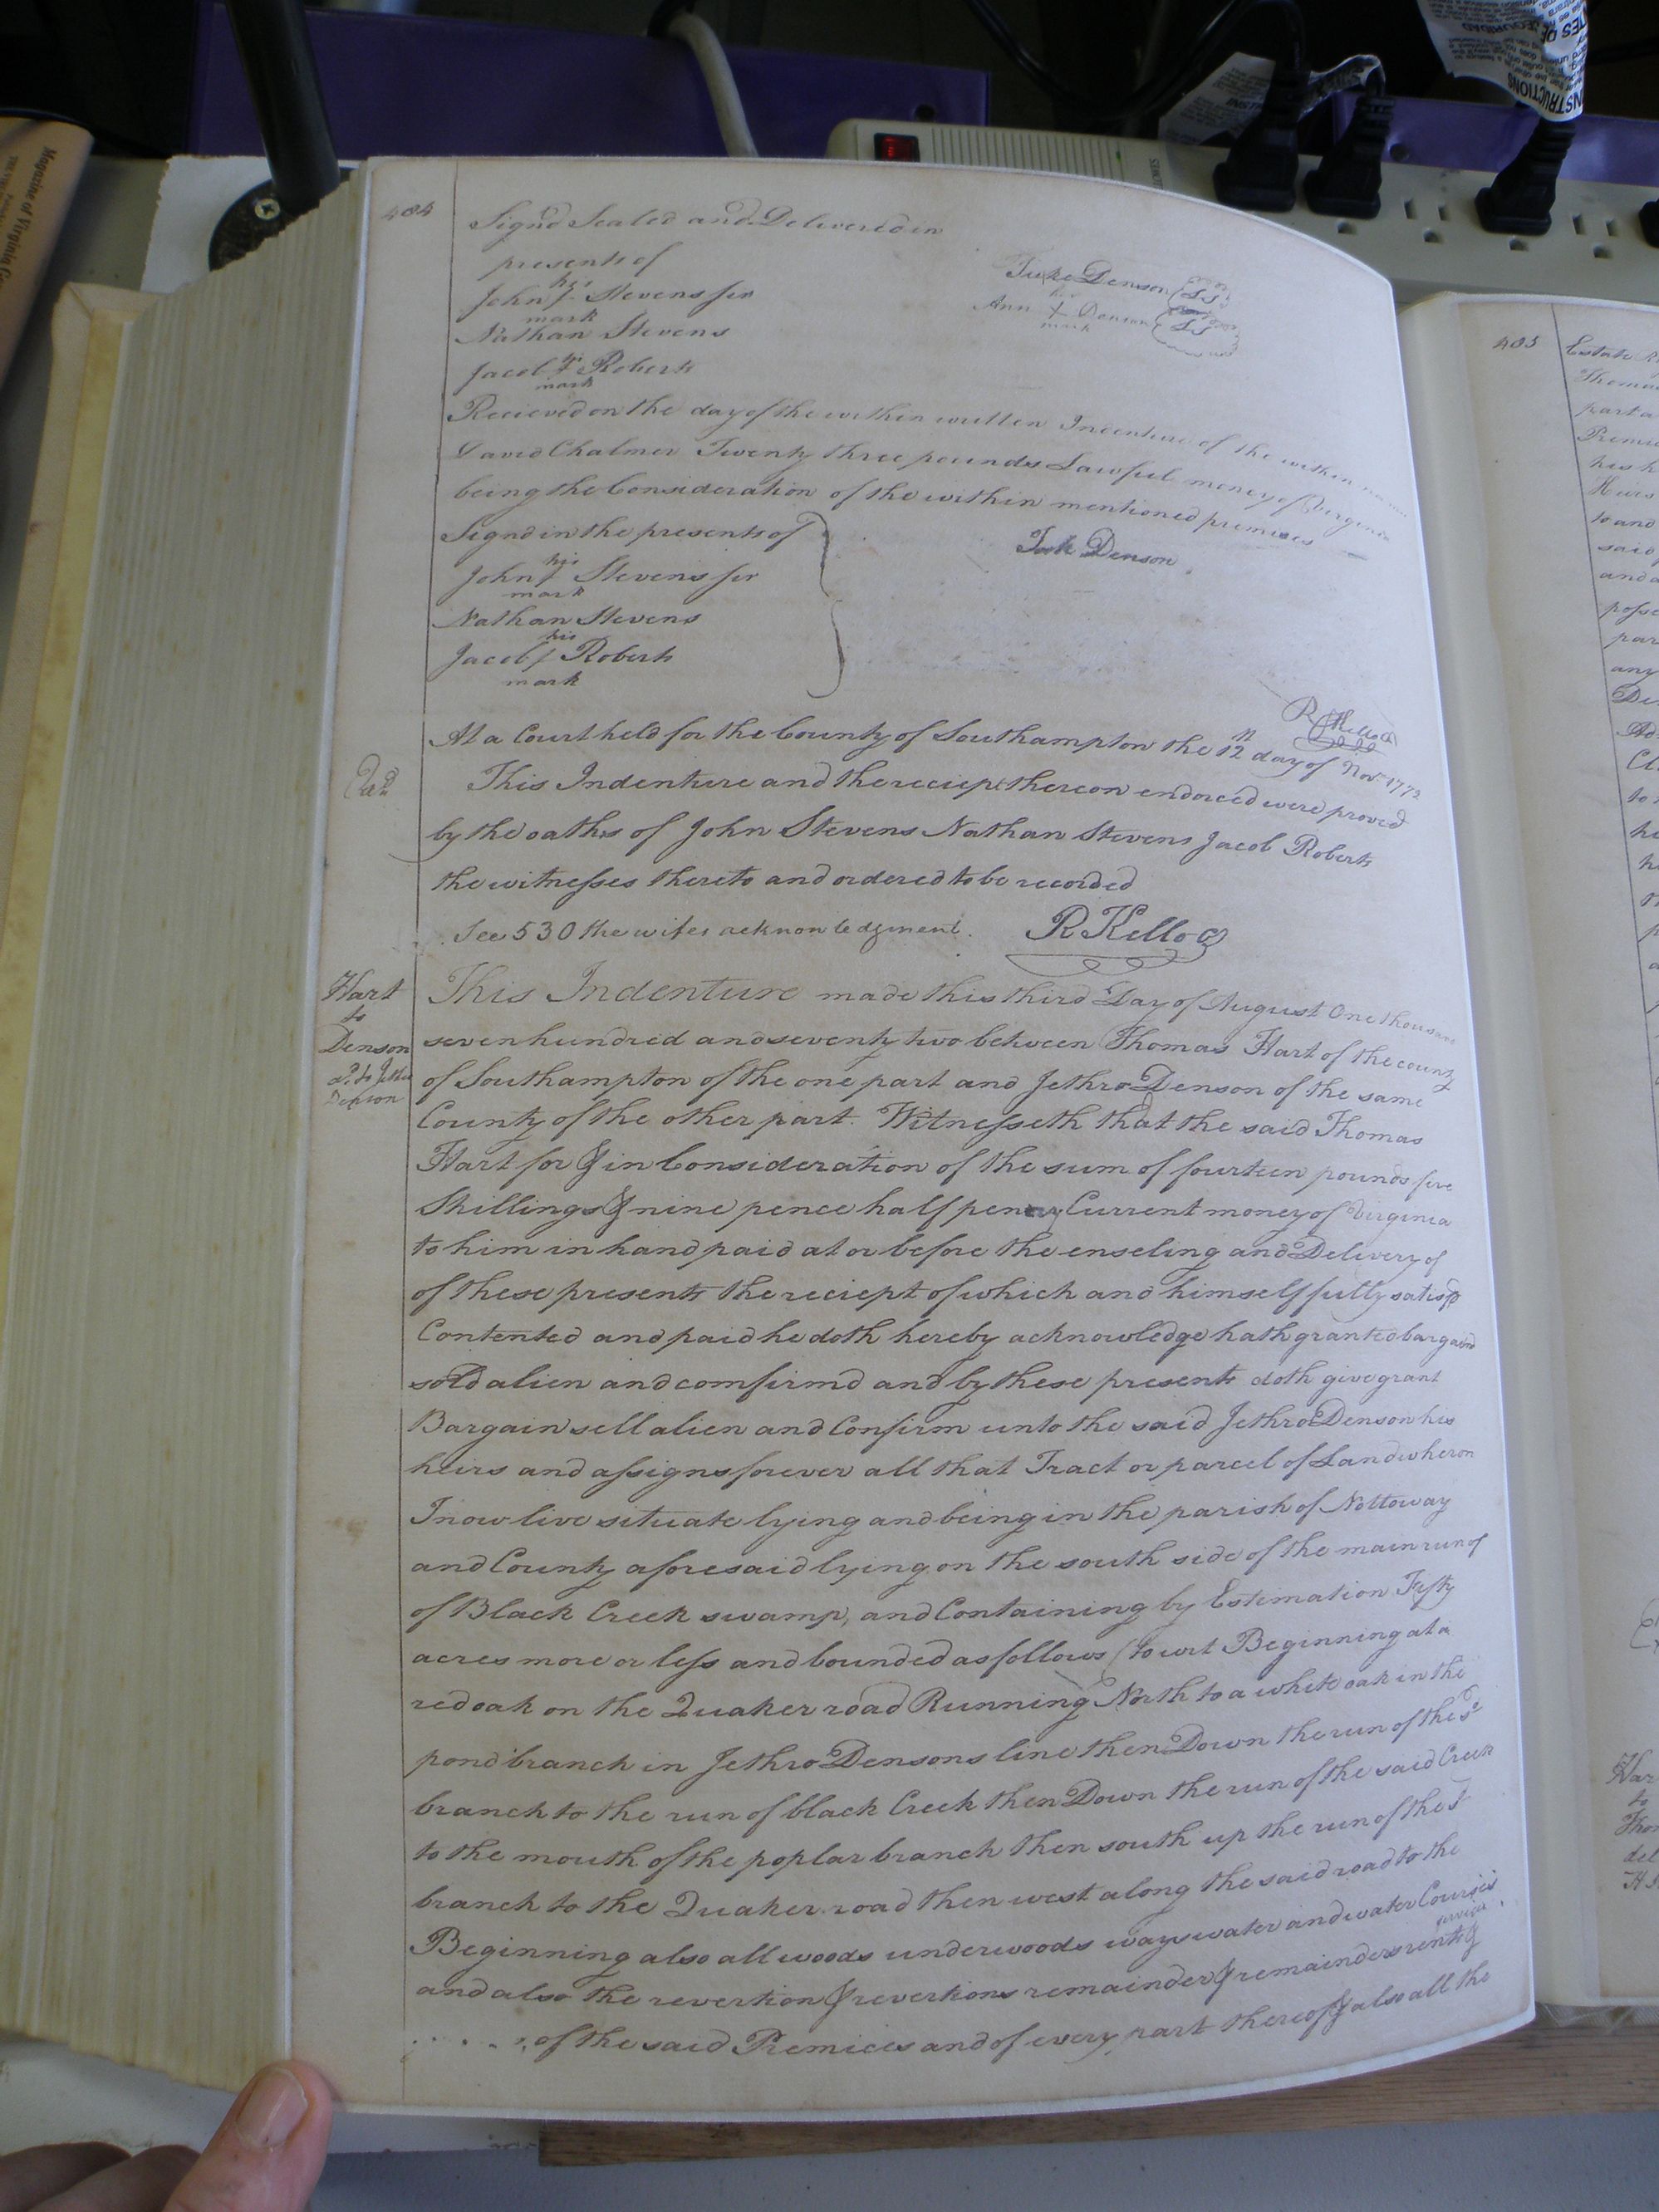 404
Signd Sealed and Delivered in
presents of
his
John J Stevens ser
mark
Nathan Stevens
Jacob Roberts
mark
Denson (LS)
Ann + Denson (LS)
mark
Recieved on the day of the within written Indenture of the within
David Chalmer Twenty three pounds Lawful money of Virginia
being the Consideration of the within mentioned premises
Signd in the presents of
his
John J Stevens ser
mark
Nathan Stevens
his
Jacob J Roberts
mark
Denson
At a Court held for the County of Southampton the 12th day of Novr 1772
This Indenture and the reciept thereon endorced were proved
by the oaths of John Stevens Nathan Stevens Jacob Roberts
the witnesses thereto and ordered to be recorded
See 530 the wifes acknowledgment.
R Kello
Hart
to
Denson
Denson
This Indenture made this third Day of August One thousand
seven hundred and seventy two between Thomas Hart of the county
of Southampton of the one part and Jethro Denson of the same
County of the other part. Witnesseth that the said Thomas
Hart for & in Consideration of the sum of fourteen pounds five
Shillings & nine pence half penny Current money of Virginia
to him in hand paid at or before the enseling and Delivery of
of these presents the reciept of which and himself fully satisfd
Contented and paid he doth hereby acknowledge hath granted bargaind
sold alien and comfirmd and by these presents doth give grant
Bargain sell alien and Confirm unto the said Jethro Denson his
heirs and assigns forever all that Tract or parcel of Land wheron
I now live situate lying and being in the parish of Nottoway
and County aforesaid lying on the south side of the main run of
of Black Creek swamp, and Containing by Estimation Fifty
acres more or less and bounded as follows (to wit Beginning at a
red oak on the Quaker road Running North to a white oak in the
pond branch in Jethro Densons line then Down the run of the sd
branch to the run of black Creek then Down the run of the said Creek
to the mouth of the poplar branch then south up the run of the sd
branch to the Quaker road then west along the said road to the
Beginning also all woods underwoods ways water and water Courses
and also the revertion & revertions remainder & remainders rents &
of the said Premices and of every part thereof & also all the
405
Estate
his h
to and
said
and
par
any
De
to
Har
to
Tho
del
Magazine of Virginia
INSTRUCTIONS